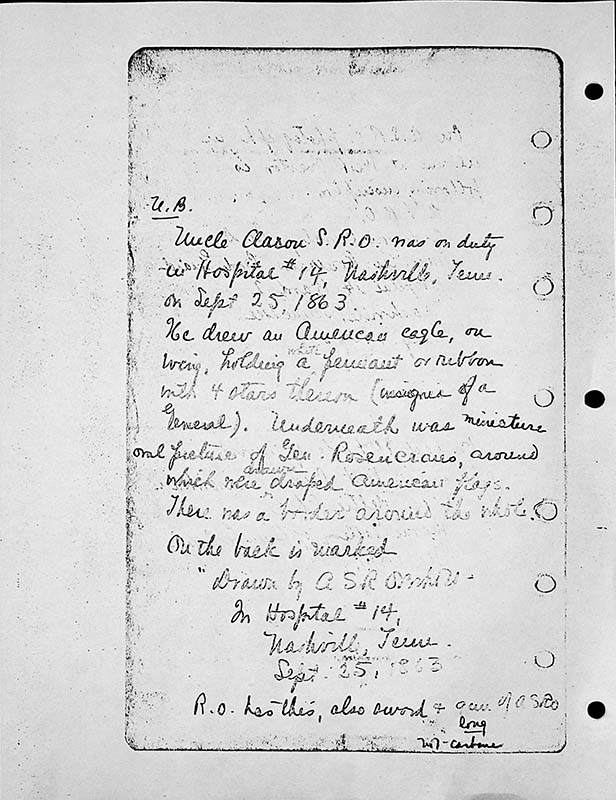 N.B.
Uncle Aaron S.R.O. was on duty
in Hospital #14, Nashville, Tenn.
on Sept 25 1863
He drew an American eagle, on
wing, holding a white pennant or ribbon
with 4 stars thereon (insignia of a
General). Underneath was miniature
oval picture of Gen. Rosencrans, around
which were drawn draped American flags.
There was a border around the whole.
On the back is marked
"Drawn by A S R
In Hospital #14,
Nashville, Tenn.
Sept. 25, 1863
R.O. has this, also sword + gun of A S R O
long
not carbine